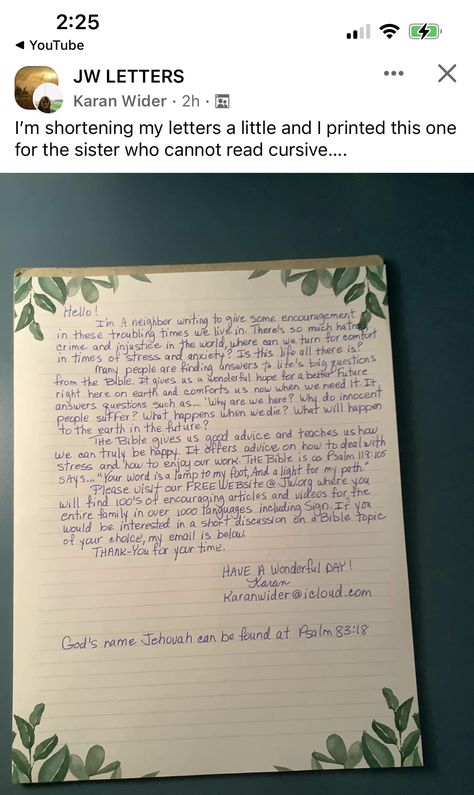 2:25
◀ YouTube
JW LETTERS
Karan Wider · 2h ·
I'm shortening my letters a little and I printed this one
for the sister who cannot read cursive....
Hello!
I'm A neighbor writing to give some encouragement
in these troubling times we live in. There's so much hatred,
crime and injustice in the world, where can we turn for comfort
in times of stress and anxiety? Is this life all there is?
Many people are finding answers to life's big questions
from the Bible. It gives us a wonderful hope for a better future
right here on earth and comforts us now when we need it. It
answers questions such as... "Why are we here? Why do innocent
people suffer? What happens when we die? What will happen
to the earth in the future?
THE Bible gives us good advice and teaches us how
we can truly be happy. It offers advice on how to deal with
stress and how to enjoy our work. THE Bible is as Psalm 119:105
SAYS... "Your word is a lamp to my foot, And a light for my path."
Please visit our FREE WEBSITE @ JW.org where you
will find 100's of encouraging articles and videos for the
entire family in over 1000 languages including Sign. If you
would be interested in a short discussion on a Bible topic
of your choice, my email is below.
THANK-YOU for your time.
HAVE A Wonderful DAY!
Karan
Karanwider@icloud.com
God's name Jehovah can be found at Psalm 83:18